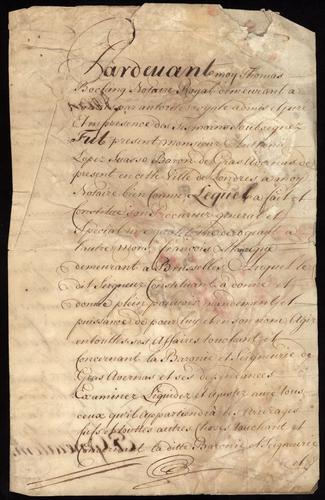 Pardevant moy Thomas
Bocking Notaire Royal demeurant a
par autorité royale admis et juré
Et en presence des
Fut present Monsieur Anthonio
Lopez Suasso Baron de Gras Avernas de
present en cette Ville de Londres a moy
Notaire bien connu, Lequel a fait et
Constitué son Procureur general et
Special
l'autre Mons. François
demeurant a Bruxelles Auquel le
dit Seigneur Constituant a donné et
donne plein pouvoir, mandement et
puissance de pour luy et en son nom Agir
en toutes ses Affaires touchant et
concernant la Baronie et Seigneurie de
Gras Avernas et ses dependances
Examiner Liquider et ajuster avec tous
ceux qu'il appartiendra les Arrerages
autres choses touchant et
Concernant la ditte Baronie et Seigneurie